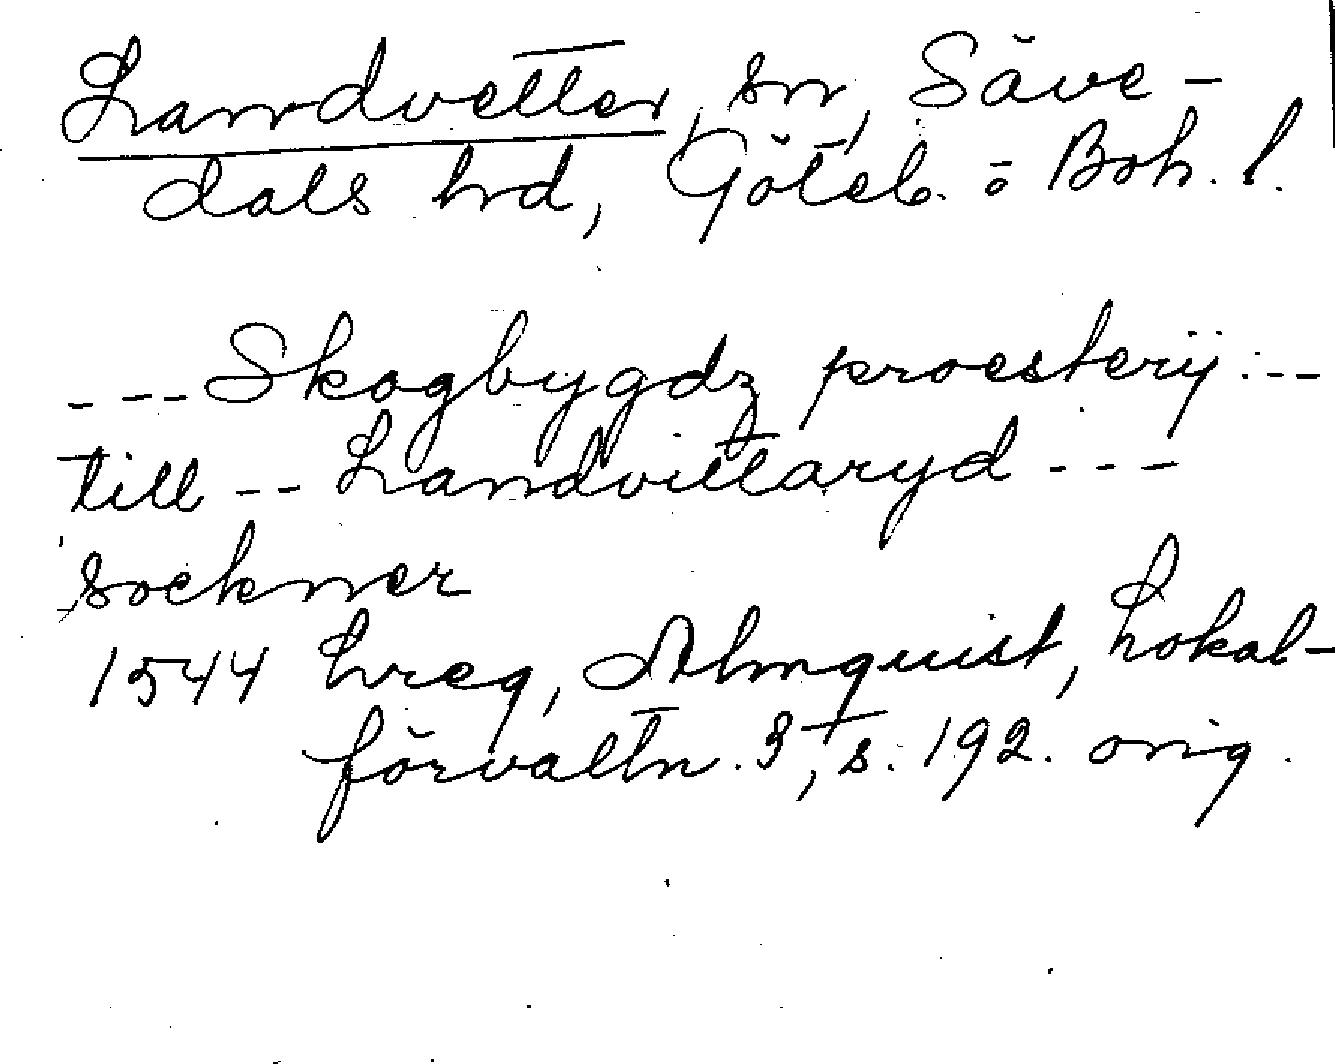 Landvetter, sn, Säve-
dals hd, Göteb. o Boh. l.
---Skogbygdz proesterij:--
till -- Landvittaryd ---
sockner
1544 Lreg, Almquist, Lokal-
förvaltn. 3, s. 192. orig.